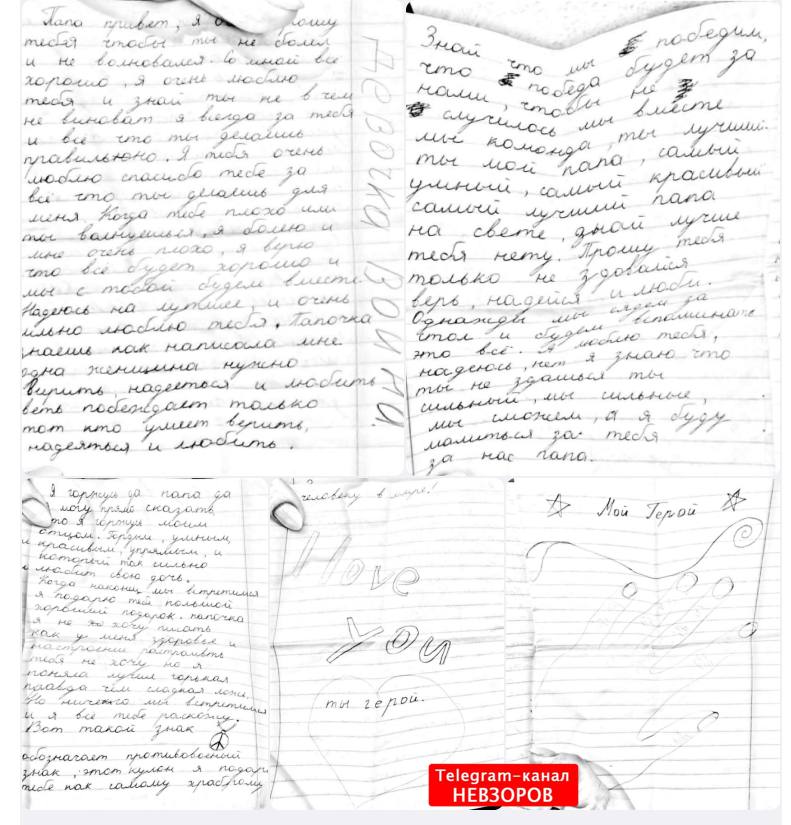 Папа привет, я прошу
тебя чтобы ты не болел
и не волновался. Со мной всё
хорошо, я очень люблю
тебя и знай ты не в чем
не виноват я всегда за тебя
и всё что ты делаешь
правильно. Я тибя очень
люблю спасибо тебе за
всё что ты делаешь для
меня. Когда тебе плохо или
ты волнуешься, я болею и
мне очень плохо, я верю
что всё будет хорошо и
мы с тобой будем вместе.
Надеюсь на лутшее, и очень
сильно люблю тебя. Папочка
знаешь как написала мне
одна женщина нужно
верить, надееться и любить
веть побеждает только
тот кто умеет верить,
надеяться и любить.
ДЕВОЧКА ВОЙНА.
Знай что мы победим,
что победа будет за
нами, чтобы не
случилось мы вместе
мы команда, ты лучший.
ты мой папа, самый
умный, самый красивый
самый лучший папа
на свете, знай лучше
тебя нету. Прошу тебя
только не здовайся
верь, надейся и люби.
Однажды мы сядем за
стол и будем вспоминать
это всё. Я люблю тебя,
надеюсь, нет я знаю что
ты не здашься ты
сильный, мы сильные,
мы сможем, а я буду
молиться за тебя
за нас папа.
Я горжусь да папа да
я могу прямо сказать
что я горжусь моим
отцом. Гордым, умным,
красивым, упрямым, и
который так сильно
любит свою дочь.
Когда наконец мы встретимся
я подарю тебе большой
хороший подарок. папочка
я не хочу писать
как у меня здоровье и
настроение растраивать
тебя не хочу но я
поняла лучше горькая
правда чем сладкая ложь.
Но ничего мы встретимся
и я всё тебе раскажу.
Вот такой знак
обозначает противовоенный
знак, этот кулон я подарю
тебе как самому храброму
человеку в мире!
I love
you
ты герой.
Мой Герой
Telegram-канал
НЕВЗОРОВ